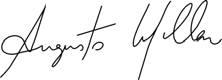 Augusto Millan